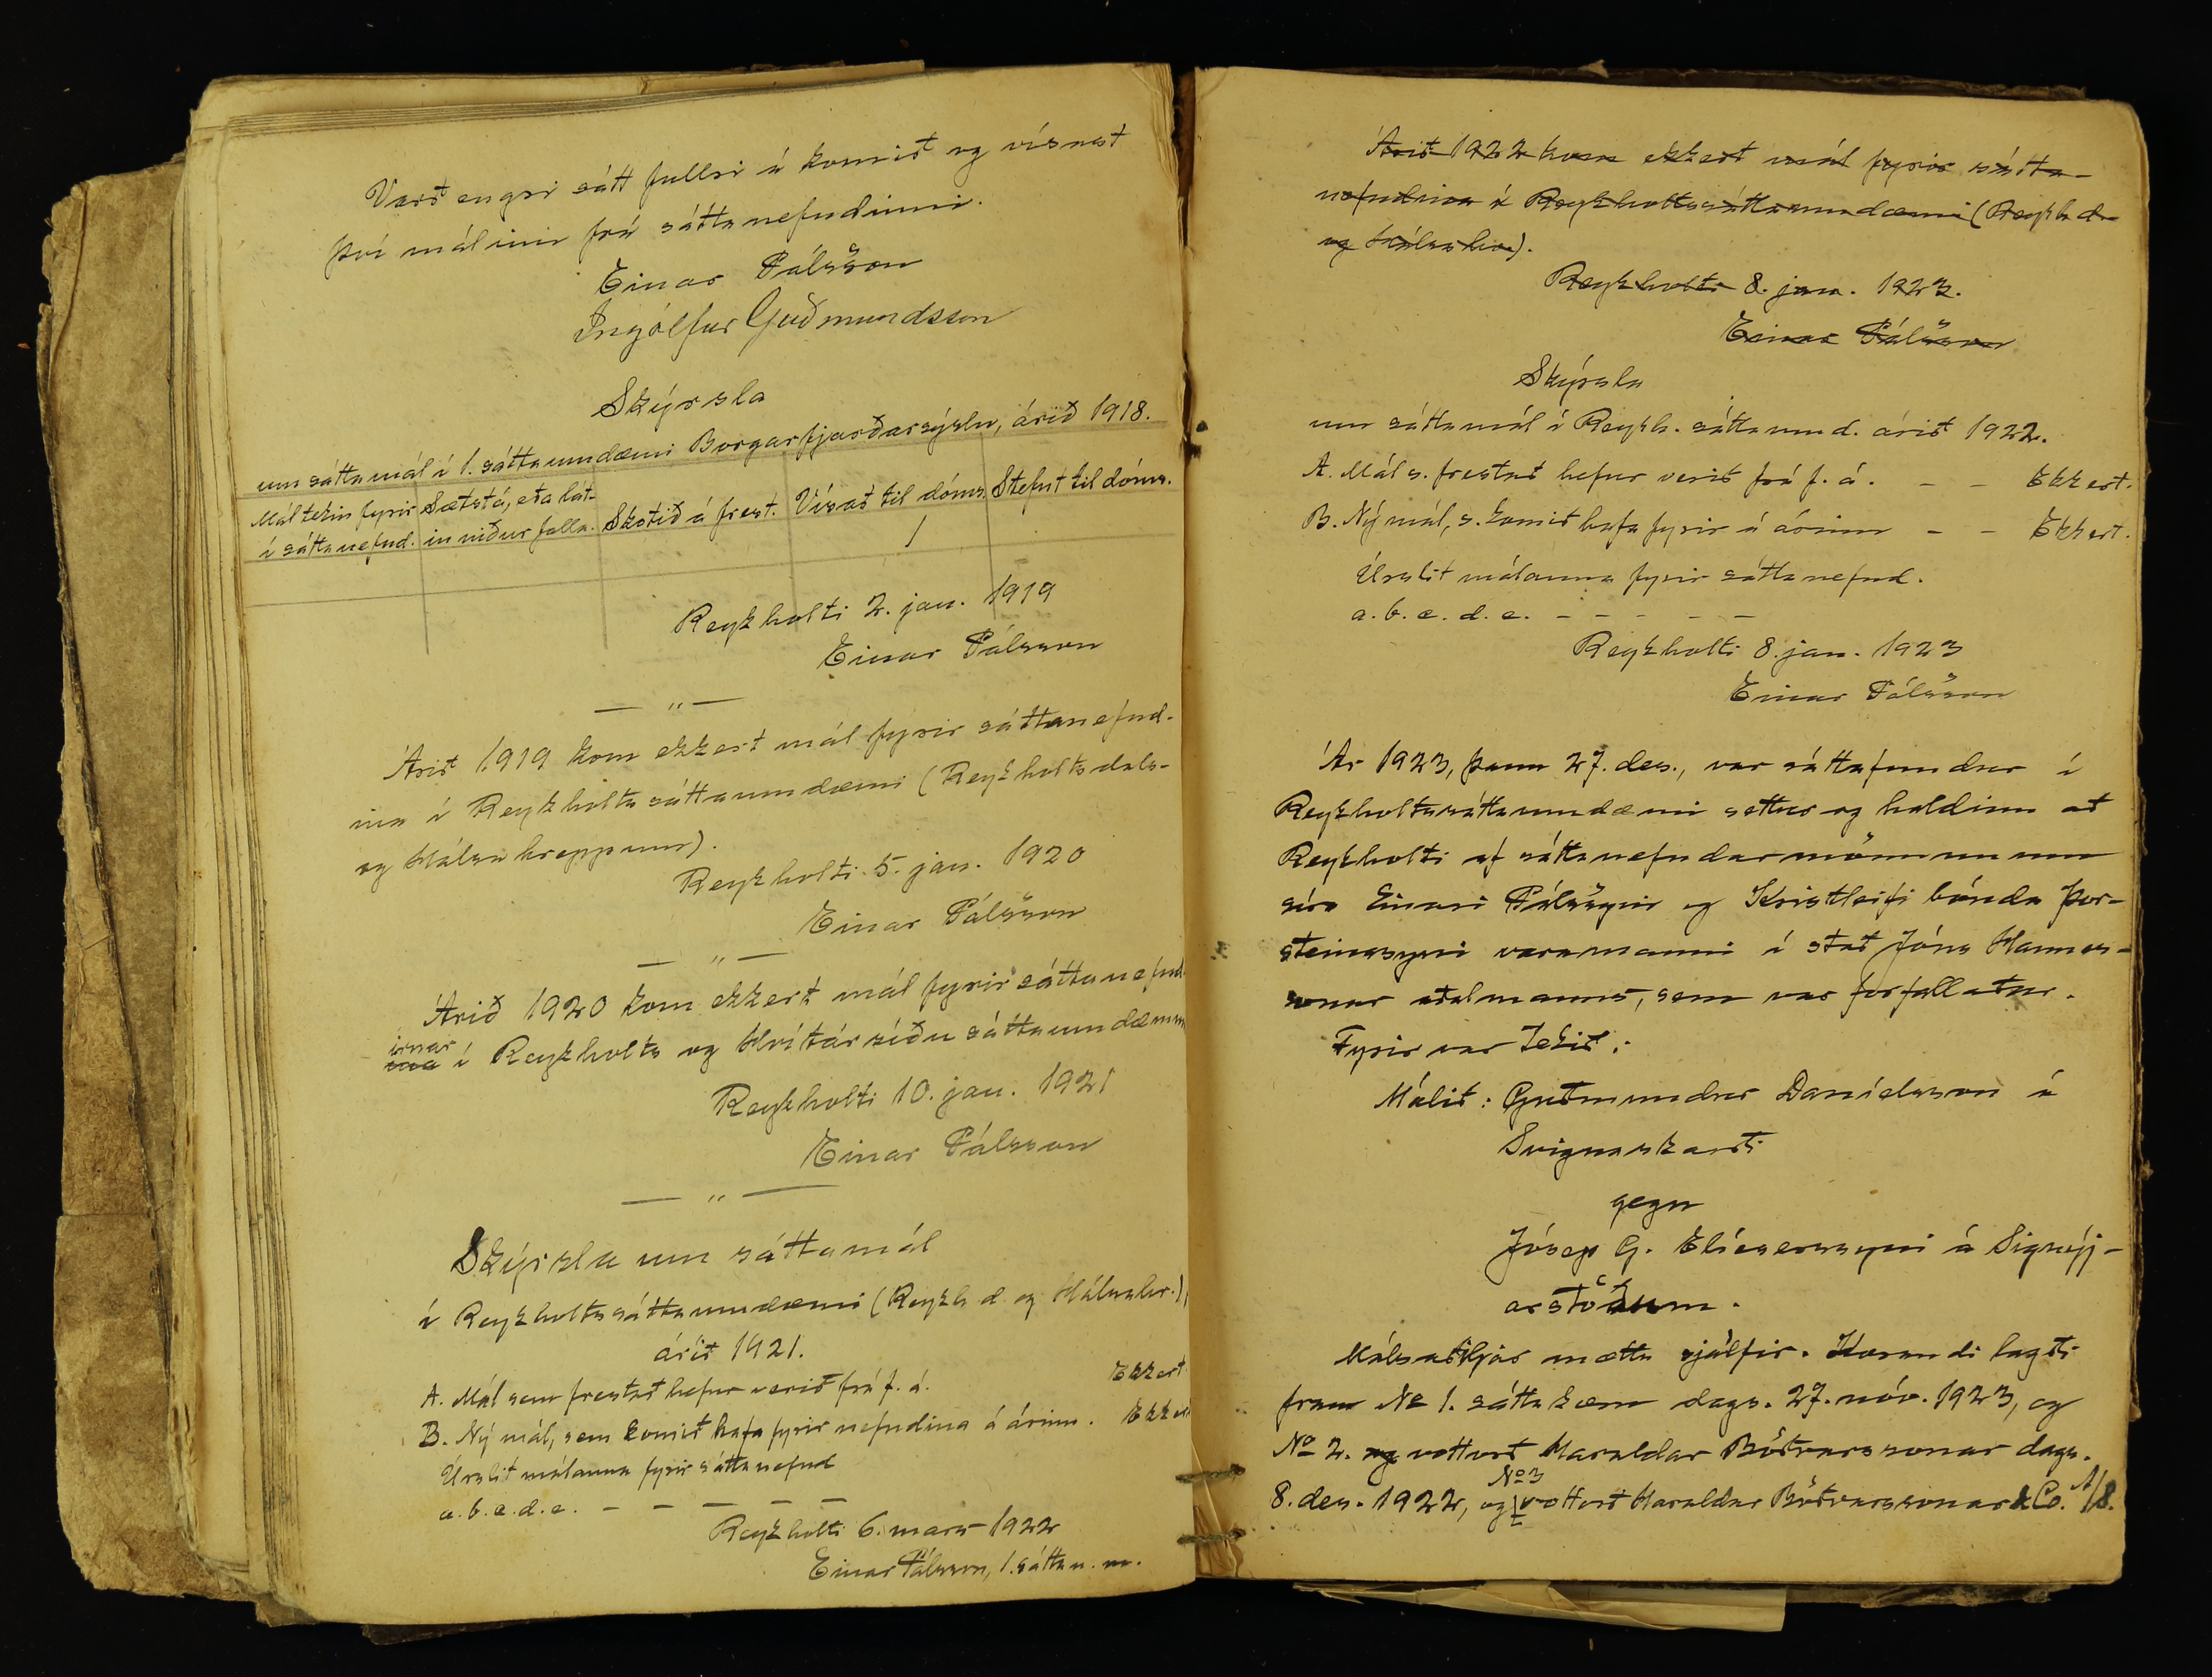 Varð engri sátt fullri á komið og vísast
því málinu frá sáttanefndinni.
Einar Pálsson
Ingólfur Guðmundsson
Skýrsla
um sáttamál í 1. sáttaumdæmi Borgarfjarðarsýslu, árið 1918.
Mál tekin fyrir Sætst á, eða lát- Skotið á frest. Vísað til dóms. Stefnt til dóms.
í sáttanefnd. in niður falla. 1
Reykholti 2. jan. 1919
Einar Pálsson
— „ —
Árið 1919 kom ekkert mál fyrir sáttanefnd-
ina í Reykholtssáttaumdæmi (Reykholtsdals-
og Hálsahreppum).
Reykholti 5. jan. 1920
Einar Pálsson
— „ —
Árið 1920 kom ekkert mál fyrir sáttanefnd
irnar
ina í Reykholts og Hvítársíðu sáttaumdæmum
Reykholti 10. jan. 1921
Einar Pálsson
— „ —
Skýrsla um sáttamál
í Reykholtssáttaumdæmi (Reykh.d. og Hálsahr.),
árið 1921.
A. Mál sem frestað hefur verið frá f. á. Ekkert
B. Ný mál, sem komið hafa fyrir nefndina á árinu. Ekkert
Úrslit málanna fyrir sáttanefnd
a. b. c. d. e. — — — — —
Reykholti 6. mars 1922
Einar Pálsson, 1. sáttan. m.
Árið 1922 kom ekkert mál fyrir sátta-
nefndina í Reykholtssáttaumdæmi (Reykh.d.
og Hálsahr.).
Reykholti 8. jan. 1923.
Einar Pálsson
Skýrsla
um sáttamál í Reykh. sáttaumd. árið 1922.
A. Mál s. frestað hefur verið frá f. á. — — Ekkert.
B. Ný mál, s. komið hafa fyrir á árinu — — Ekkert.
Úrslit málanna fyrir sáttanefnd.
a. b. c. d. e. — — — — —
Reykholti 8. jan. 1923
Einar Pálsson
Ár 1923, þann 27. des., var sáttafundur í
Reykholtssáttaumdæmi settur og haldinn að
Reykholti af sáttanefndarmönnunum
síra Einari Pálssyni og Kristleifi bónda Þor-
steinssyni varamanni í stað Jóns Hannes-
sonar aðalmanns, sem var forfallaður.
Fyrir var tekið:
Málið: Guðmundur Daníelsson á
Svignaskarði
gegn
Jósep G. Elíesersyni á Signýj-
arstöðum.
Málsaðiljar mættu sjálfir. Kærandi lagði
fram No 1. sáttakæru dags. 27. nóv. 1923, og
No 2. og vottorð Haraldar Böðvarssonar dags.
No 3
8. des. 1922, og vottorð Haraldar Böðvarssonar & Co. A/S.